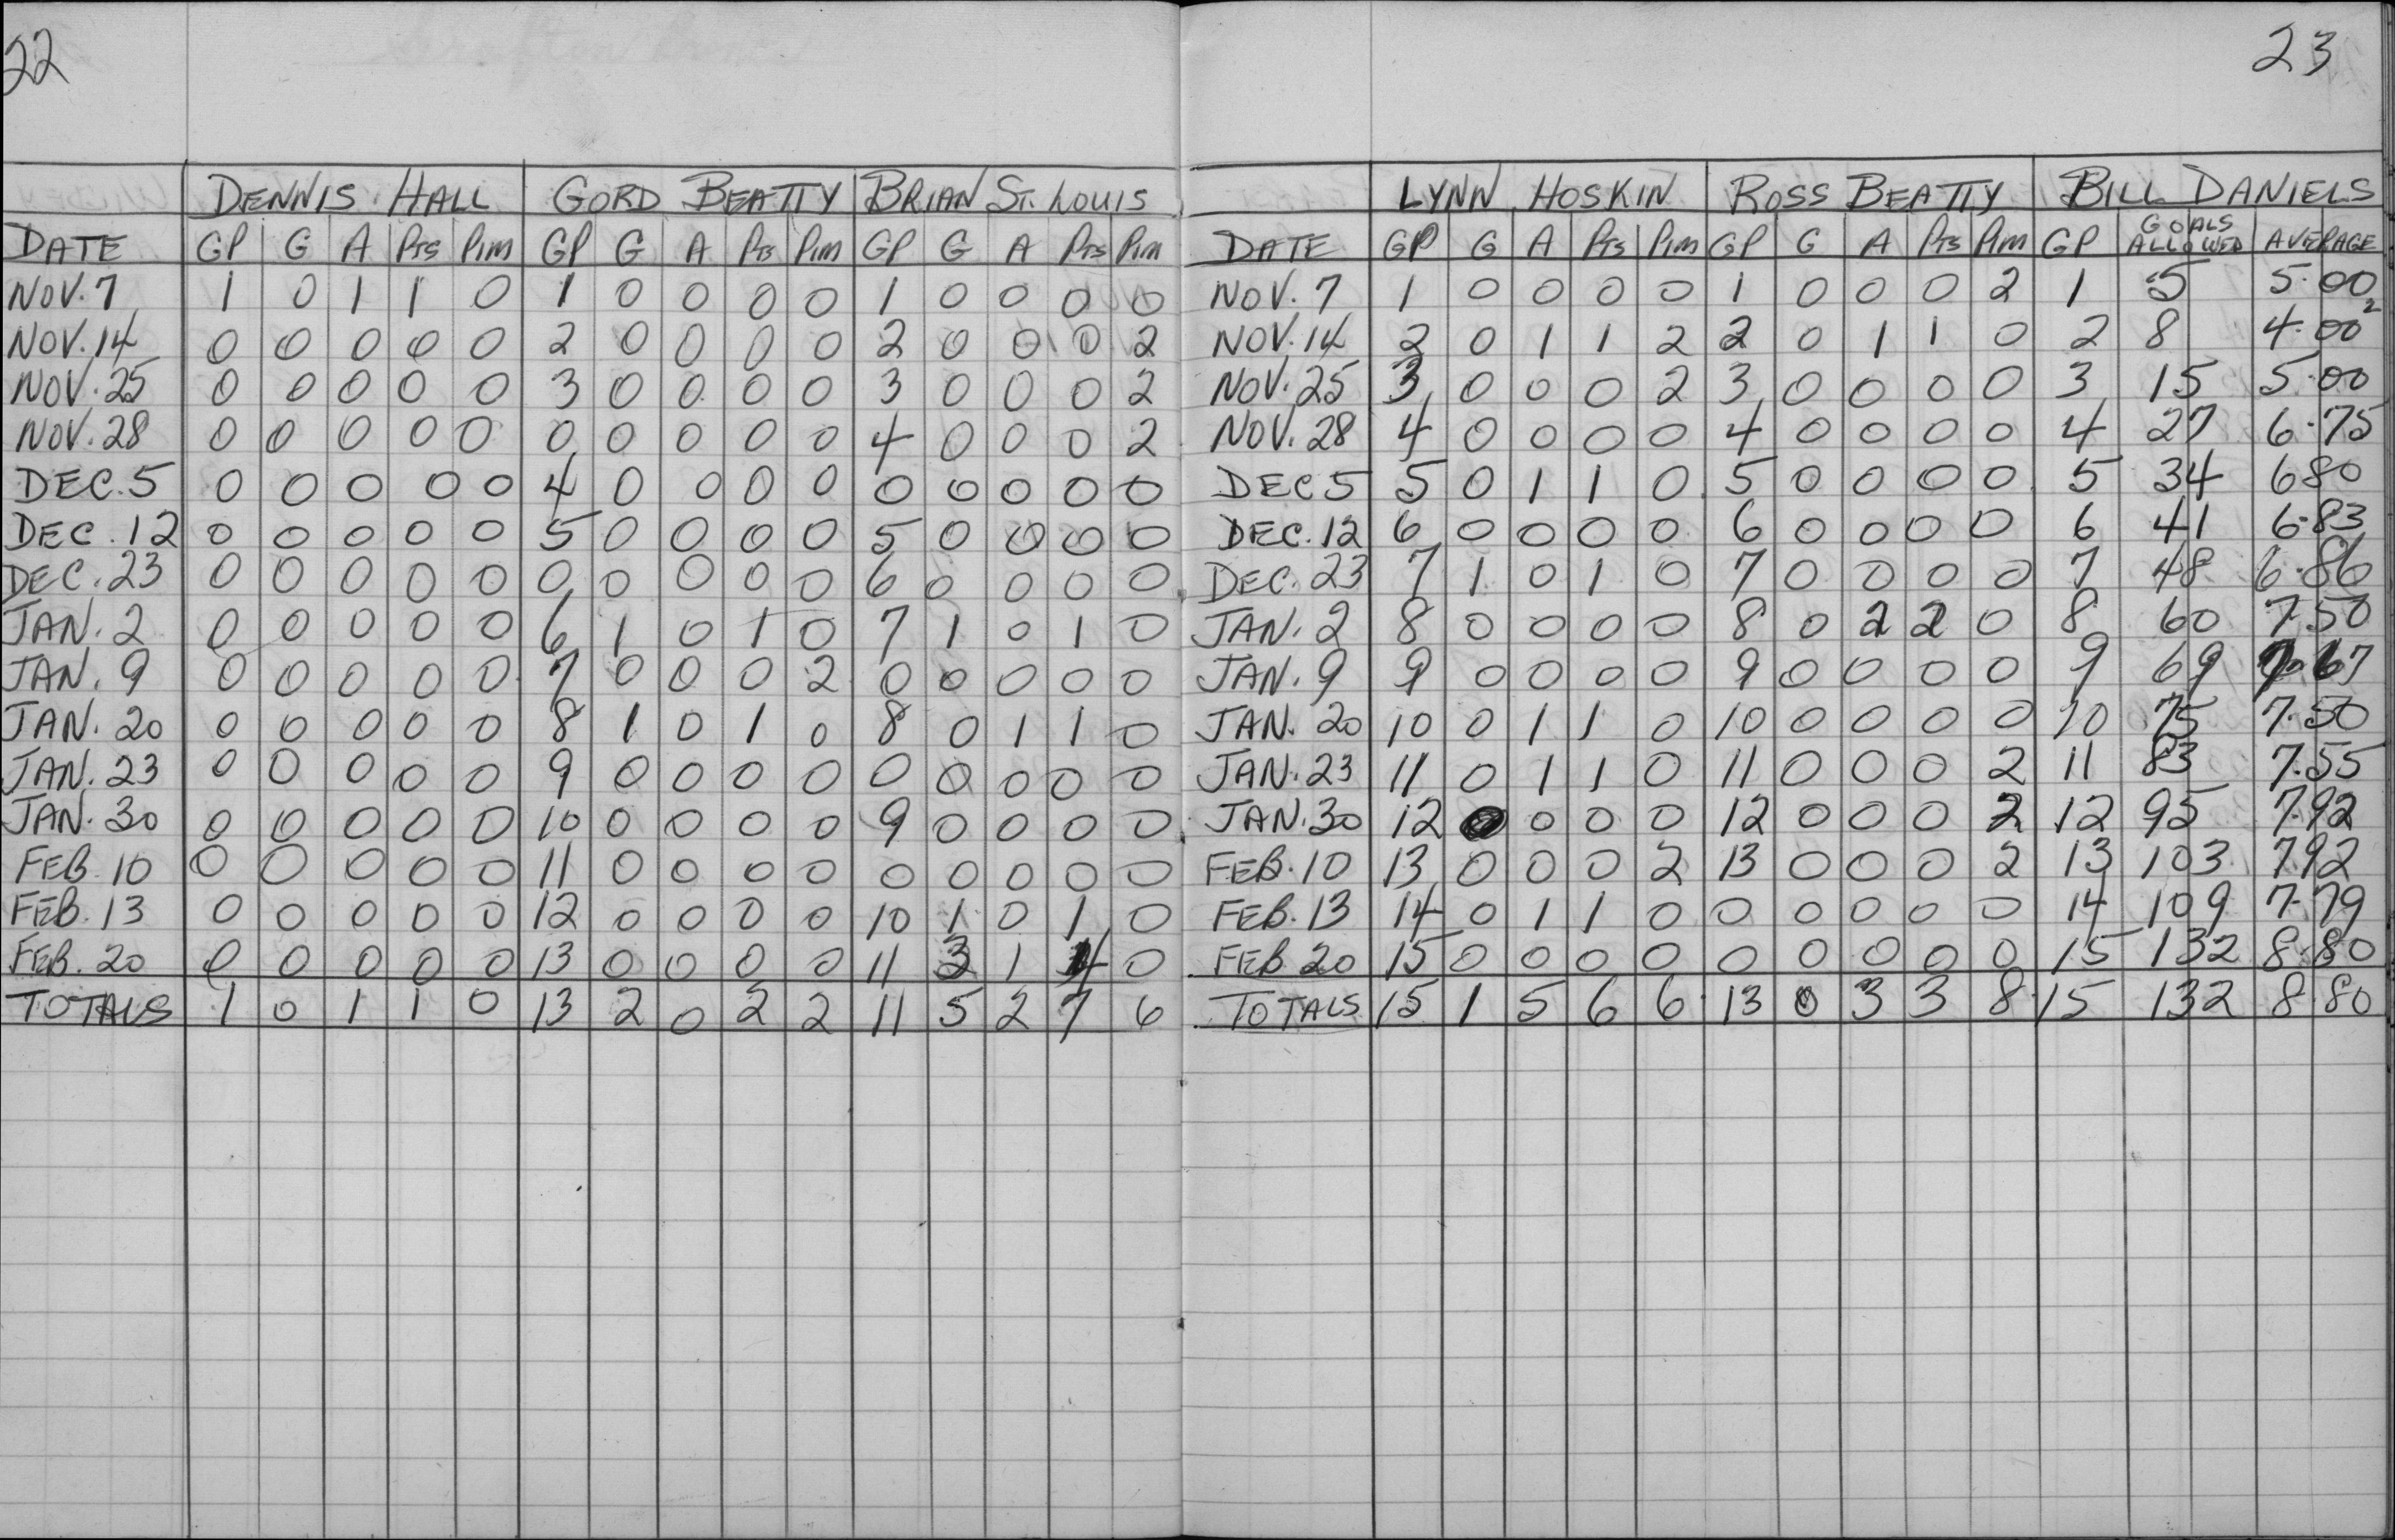 22
DENNIS HALL GORD BEATTY BRIAN ST. LOUIS
DATE GP G A PTS PIM GP G A PTS PIM GP G A PTS PIM
NOV. 7 1 0 1 1 0 1 0 0 0 0 1 0 0 0 0
NOV. 14 0 0 0 0 0 2 0 0 0 0 2 0 0 0 2
NOV. 25 0 0 0 0 0 3 0 0 0 0 3 0 0 0 2
NOV. 28 0 0 0 0 0 0 0 0 0 0 4 0 0 0 2
DEC. 5 0 0 0 0 0 4 0 0 0 0 0 0 0 0 0
DEC. 12 0 0 0 0 0 5 0 0 0 0 5 0 0 0 0
DEC. 23 0 0 0 0 0 0 0 0 0 0 6 0 0 0 0
JAN. 2 0 0 0 0 0 6 1 0 1 0 7 1 0 1 0
JAN. 9 0 0 0 0 0 7 0 0 0 2 0 0 0 0 0
JAN. 20 0 0 0 0 0 8 1 0 1 0 8 0 1 1 0
JAN. 23 0 0 0 0 0 9 0 0 0 0 0 0 0 0 0
JAN. 30 0 0 0 0 0 10 0 0 0 0 9 0 0 0 0
FEB. 10 0 0 0 0 0 11 0 0 0 0 0 0 0 0 0
FEB. 13 0 0 0 0 0 12 0 0 0 0 10 1 0 1 0
FEB. 20 0 0 0 0 0 13 0 0 0 0 11 3 1 4 0
TOTALS 1 0 1 1 0 13 2 0 2 2 11 5 2 7 6
23
LYNN HOSKIN ROSS BEATTY BILL DANIELS
DATE GP G A PTS PIM GP G A PTS PIM GP GOALS ALLOWED AVERAGE
NOV. 7 1 0 0 0 0 1 0 0 0 2 1 5 5.00
NOV. 14 2 0 1 1 2 2 0 1 1 0 2 8 4.00 2
NOV. 25 3 0 0 0 2 3 0 0 0 0 3 15 5.00
NOV. 28 4 0 0 0 0 4 0 0 0 0 4 27 6.75
DEC 5 5 0 1 1 0 5 0 0 0 0 5 34 6 80
DEC. 12 6 0 0 0 0 6 0 0 0 0 6 41 6.83
DEC. 23 7 1 0 1 0 7 0 0 0 0 7 48 6.86
JAN. 2 8 0 0 0 0 8 0 2 2 0 8 60 7.50
JAN. 9 9 0 0 0 0 9 0 0 0 0 9 69 7.67
JAN. 20 10 0 1 1 0 10 0 0 0 0 10 75 7.50
JAN. 23 11 0 1 1 0 11 0 0 0 2 11 83 7.55
JAN. 30 12 0 0 0 0 12 0 0 0 2 12 95 7.92
FEB. 10 13 0 0 0 2 13 0 0 0 2 13 103 7.92
FEB. 13 14 0 1 1 0 0 0 0 0 0 14 109 7.79
FEB 20 15 0 0 0 0 0 0 0 0 0 15 132 8.80
TOTALS 15 1 5 6 6 13 0 3 3 8 15 132 8.80